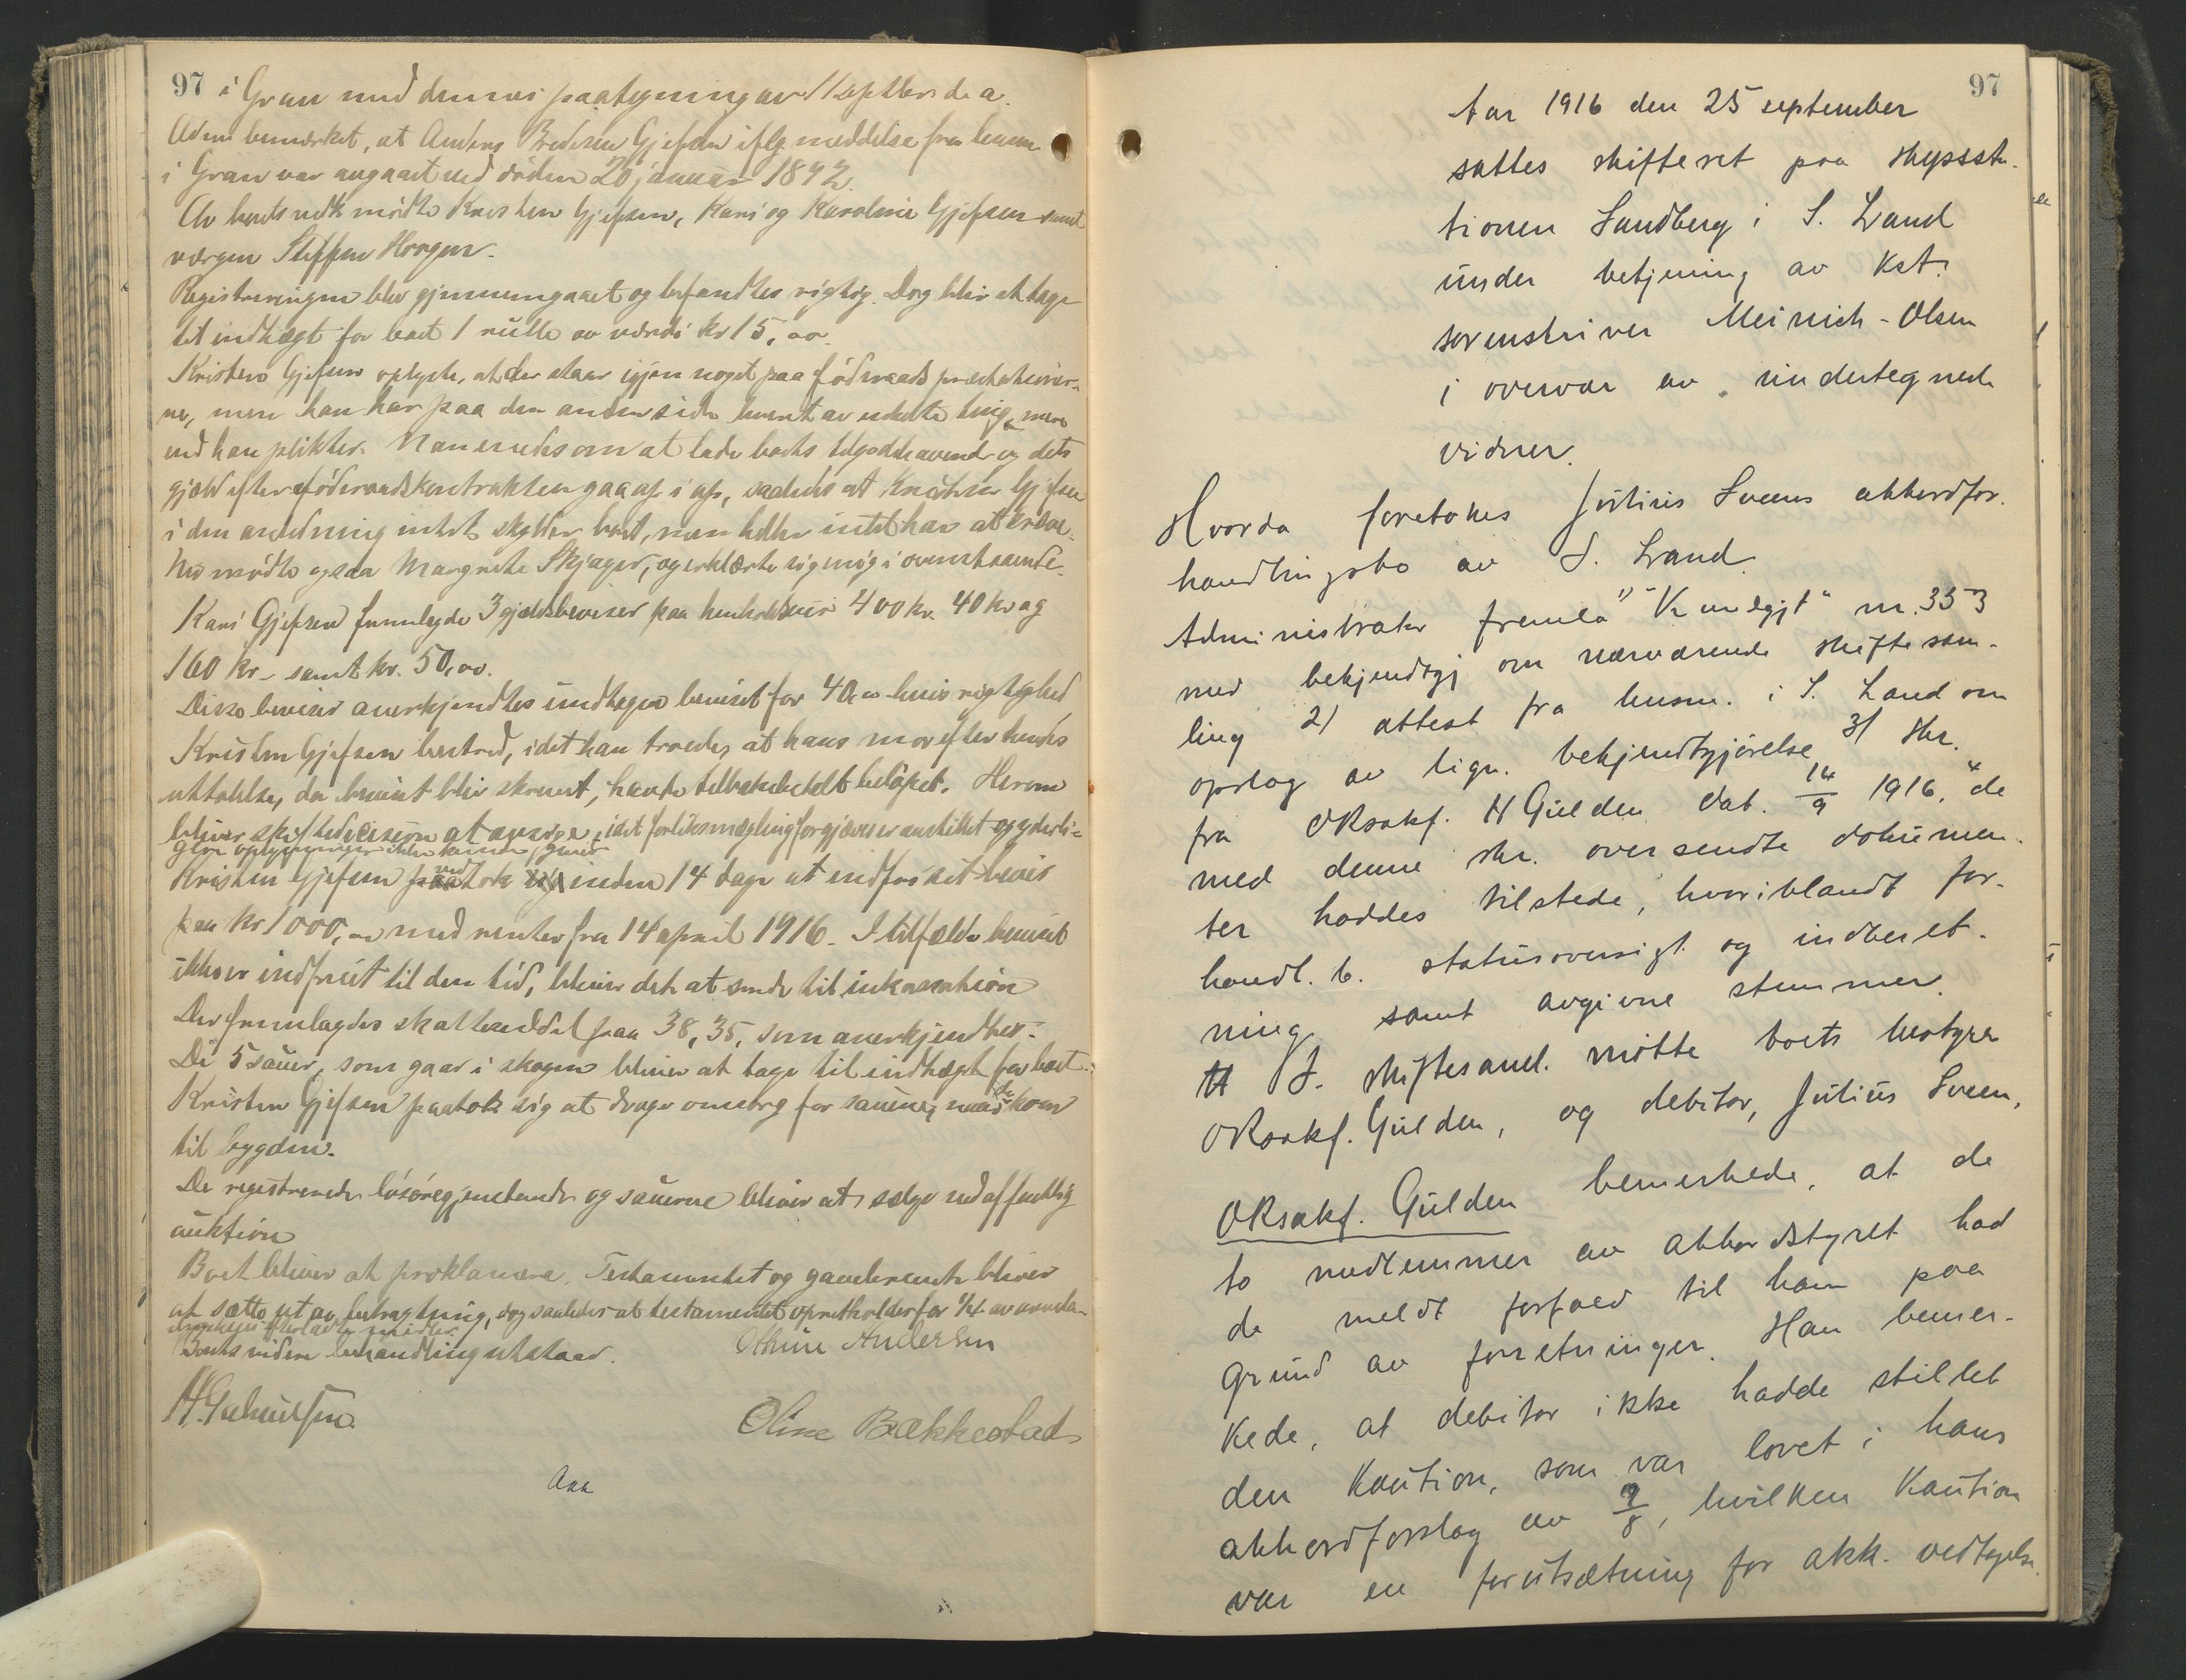 97 i Gran med dennes paategning av 11 septbr. d. a.
Adm. bemærket, at Anders Bredesen Gjefsen iflg. meddelse fra lensm.
i Gran var avgaaet ved døden 20 januar 1892.
Av boets vedk. mødte Kristen Gjefsen, Kari og Karoline Gjefsen samt
værgen Steffen Horgen.
Registreringen blev gjennemgaaet og befandtes rigtig. Dog blir at tage
til indtægt for boet 1 rulle av værdi kr 15,00.
Kristen Gjefsen oplyste, at der staar igjen noget paa føderaads præstationer-
ne, men han har paa den anden side levert av enkelte ting mere
end han plikter. Man enedes om at lade boets tilgodehavende og dets
gjæld efter føderaadskontrakten gaa op i op, saaledes at Kristen Gjefsen
i den anledning intet skylder boet, men heller intet har at kræve.
Nu mødte ogsaa Margrete Skjager, og erklærte sig enig i ovenstaaende.
Kari Gjefsen fremlagde 3 gjældsbeviser paa henholdsvis 400 kr. 40 kr og
160 kr. samt kr. 50,00.
Disse beviser anerkjendtes undtagen beviset for 40,00 hvis rigtighed
Kristen Gjefsen bestred, idet han troede, at hans mor efter hendes
uttalelse, da beviset blev skrevet, havde tilbakebetalt beløpet. Herom
bliver skiftedecision at avsige, idet forliksmægling forgjæves er anstillet og yderli-
gere oplysninger ikke kunde gives
Kristen Gjefsen vedtok inden 14 dage at indfri sit bevis
paa kr 1000,00 med renter fra 14 april 1916. I tilfælde beviset
ikke er indfriet til den tid, bliver det at sende til inkassation
Der fremlagdes skatteseddel paa 38,35, som anerkjendtes.
De 5 sauer, som gaar i skogen bliver at tage til indtægt for boet.
Kristen Gjefsen paatok sig at drage omsorg for sauene, naar de kom
til bygden.
De registrerede løsøregjenstande og sauerne bliver at sælge ved offentlig
auktion
Boet bliver at proklamere. Testamentet og gavebrevet bliver
at sætte ut av betragtning, dog saaledes at testamentet opretholdes for 1/4 av
Boets videre behandling utstaar.
Othine Andersen
Oline Bækkestad
97
Aar 1916 den 25 september
sattes skifteret paa skyssta-
tionen Sandberg i S. Land
under betjening av Kst.
sorenskriver Meinich-Olsen
i overvær av undertegnede
vidner.
Hvorda foretokes Julius Sveens akkordfor-
handlingsbo av S. Land.
Administrator fremla 1) "Kundgjt" nr. 353
med bekjendtgj om nærværende skiftesam-
ling 2) attest fra lensm. i S. Land om
opslag av lign. bekjendtgjørelse 3) skr.
fra ORsakf. H Gulden dat. 14/9 1916, de
med denne skr. oversendte dokumen-
ter haddes tilstede, hvoriblandt for-
handl. b. statusoversigt og indberet-
ning samt avgivne stemmer.
I skiftesaml. møtte boets bestyrer
ORsakf. Gulden, og debitor, Julius Sveen,
ORsakf. Gulden bemerkede, at de
to medlemmer av akkordstyret had
de meldt forfald til ham paa
grund av forretninger. Han bemer-
kede, at debitor ikke hadde stillet
den Kaution, som var lovet i hans
akkordforslag av 9/8, hvilken Kaution
var en forutsætning for akk. vedtagelse.